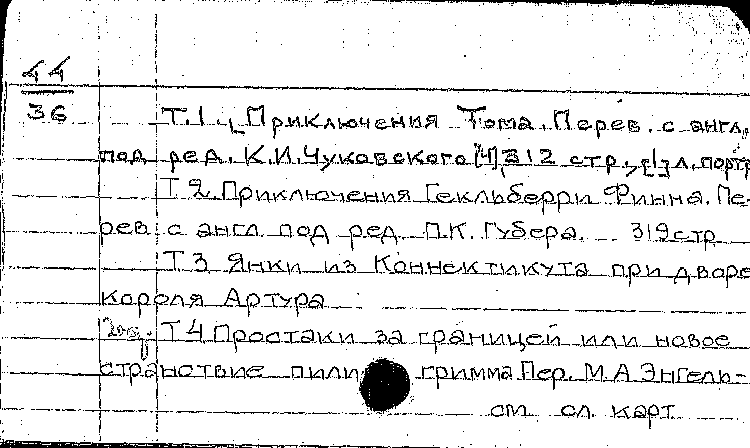 44
36
Т.1. Приключения Тома. Перев. с англ.
под ред. К.И.Чуковского [4] 312 стр., [1] л. портр
Т 2. Приключения Гекльберри Финна. Пе-
рев. с англ. под ред. П.К. Губера. 319 стр
Т 3 Янки из Коннектикута при дворе
короля Артура
Т 4 Простаки за границей или новое
странствие пилигримма Пер. М А Энгель-
см сл. карт.